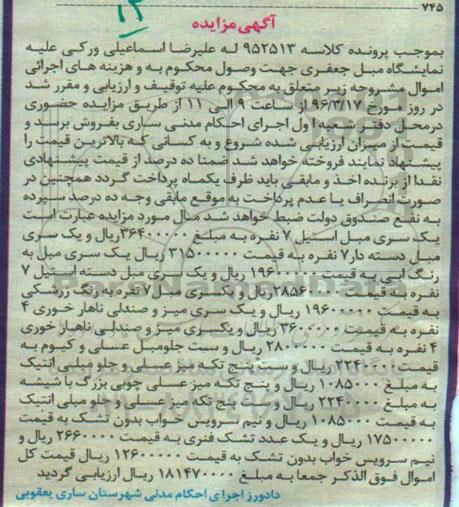 ۷۴۵
۱۳
آگهی مزایده
بموجب پرونده کلاسه ۹۵۲۵۱۳ له علیرضا اسماعیلی ورکی علیه
نمایشگاه مبل جعفری جهت وصول محکوم به و هزینه های اجرائی
اموال مشروحه زیر متعلق به محکوم علیه توقیف و ارزیابی و مقرر شد
در روز مورخ ۹۶/۳/۱۷ از ساعت ۹ الی ۱۱ از طریق مزایده حضوری
درمحل دفتر شعبه اول اجرای احکام مدنی ساری بفروش برسد و
قیمت از میزان ارزیابی شده شروع و به کسانی که بالاترین قیمت را
پیشنهاد نمایند فروخته خواهد شد ضمنا ده درصد از قیمت پیشنهادی
نقدا از برنده اخذ و مابقی باید ظرف یکماه پرداخت گردد همچنین در
صورت انصراف یا عدم پرداخت به موقع مابقی وجه ده درصد سپرده
به نفع صندوق دولت ضبط خواهد شد مال مورد مزایده عبارت است
یک سری مبل استیل ۷ نفره به مبلغ ۳۶۴۰۰۰۰۰ ریال و یک سری
مبل دسته دار ۷ نفره به قیمت ۳۱۵۰۰۰۰۰ ریال یک سری مبل به
رنگ آبی به قیمت ۱۹۶۰۰۰۰۰ ریال و یک سری مبل دسته استیل ۷
نفره به قیمت ریال و یکسری مبل ۷ نفره به رنگ زرشکی
به قیمت ۱۹۶۰۰۰۰۰ ریال و یک سری میز و صندلی ناهار خوری ۴
نفره به قیمت ریال و یکسری میز و صندلی ناهیار خوری
۴ نفره به قیمت ۲۸۰۰۰۰۰ ریال و ست جلومبل عسلی و کیوم به
قیمت ۲۲۴۰۰۰۰ ریال و ست پنج تکه میز عسلی و جلو مبلی آنتیک
به مبلغ ۱۰۸۵۰۰۰ ریال و پنج تکه میز عسلی چوبی بزرگ با شیشه
به مبلغ ۲۲۴۰۰۰۰ ریال و ست پنج تکه میز عسلی و جلو مبلی آنتیک
به قیمت ۱۰۸۵۰۰۰ ریال و نیم سرویس خواب بدون تشک به قیمت
۱۷۵۰۰۰۰۰ ریال و یک عدد تشک فنری به قیمت ۲۶۶۰۰۰۰ ریال و
نیم سرویس خواب بدون تشک به قیمت ۱۲۶۰۰۰۰۰ ریال قیمت کل
اموال فوق الذکر جمعا به مبلغ ۱۸۱۴۷۰۰۰۰ ریال ارزیابی گردید
دادورز اجرای احکام مدنی شهرستان ساری یعقوبی